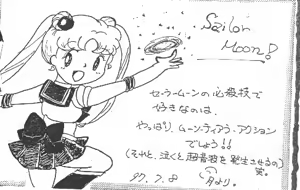 Sailor
Moon!
セーラームーンの必殺技で
好きなのは、
やっぱり、ムーン・ティアラ・アクション
でしょう!!
(それと、泣くと超音波を発生させるの)
笑。
97.7.8 月より。